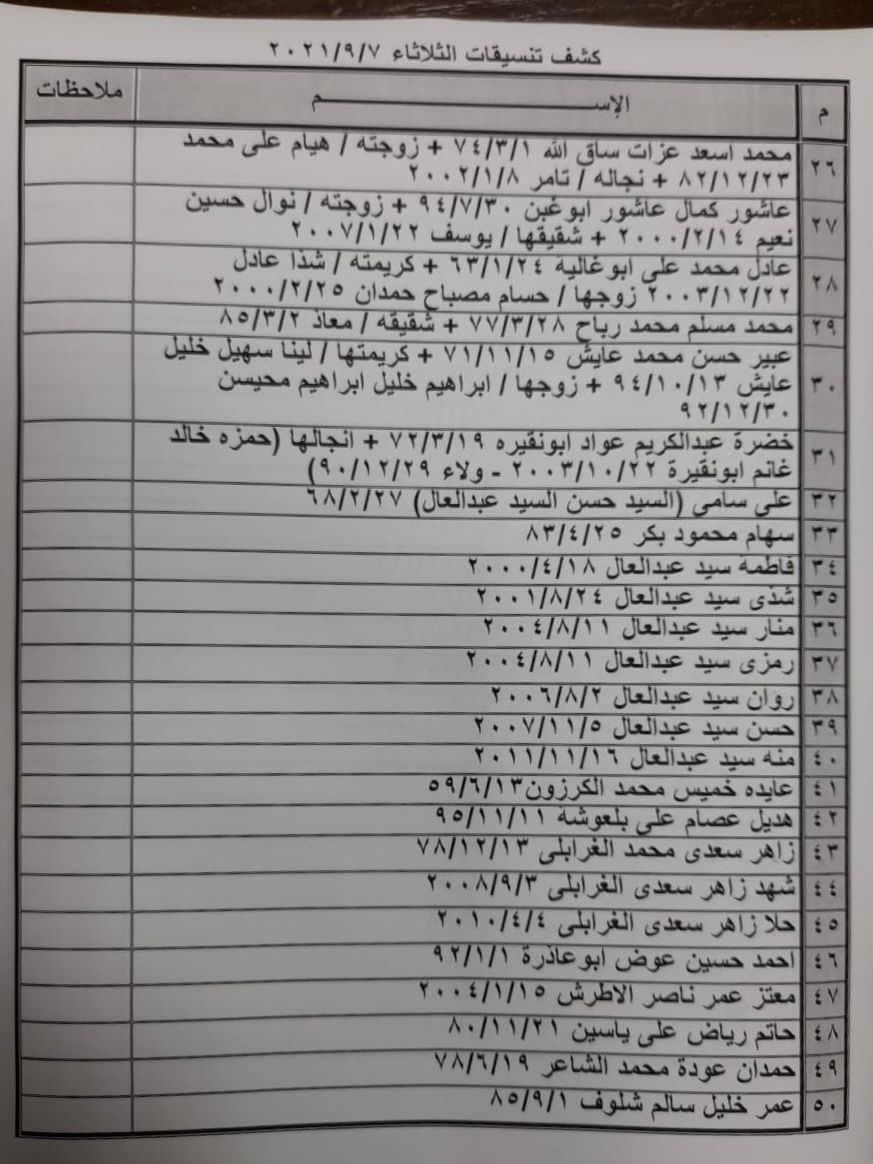 كشف تنسيقات الثلاثاء ٢٠٢١/٩/٧
م الإســـــــــم ملاحظات
٢٦ محمد اسعد عزات ساق الله ٧٤/٣/١ + زوجته / هيام على محمد
٨٢/١٢/٢٣ + نجاله / تامر ٢٠٠٢/١/٨
٢٧ عاشور كمال عاشور ابوغبن ٩٤/٧/٣٠ + زوجته / نوال حسين
نعيم ٢٠٠٠/٢/١٤ + شقيقها / يوسف ٢٠٠٧/١/٢٢
٢٨ عادل محمد على ابوغالية ٦٣/١/٢٤ + كريمته / شذا عادل
٢٠٠٣/١٢/٢٢ زوجها / حسام مصباح حمدان ٢٠٠٠/٢/٢٥
٢٩ محمد مسلم محمد رباح ٧٧/٣/٢٨ + شقيقه / معاذ ٨٥/٣/٢
٣٠ عبير حسن محمد عايش ٧١/١١/١٥ + كريمتها / لينا سهيل خليل
عايش ٩٤/١٠/١٣ + زوجها / ابراهيم خليل ابراهيم محيسن
٩٢/١٢/٣٠
٣١ خضرة عبدالكريم عواد ابونقيره ٧٢/٣/١٩ + انجالها (حمزه خالد
غانم ابونقيرة ٢٠٠٣/١٠/٢٢ - ولاء ٩٠/١٢/٢٩)
٣٢ على سامى (السيد حسن السيد عبدالعال) ٦٨/٢/٢٧
٣٣ سهام محمود بكر ٨٣/٤/٢٥
٣٤ فاطمة سيد عبدالعال ٢٠٠٠/٤/١٨
٣٥ شذى سيد عبدالعال ٢٠٠١/٨/٢٤
٣٦ منار سيد عبدالعال ٢٠٠٤/٨/١١
٣٧ رمزى سيد عبدالعال ٢٠٠٤/٨/١١
٣٨ روان سيد عبدالعال ٢٠٠٦/٨/٢
٣٩ حسن سيد عبدالعال ٢٠٠٧/١١/٥
٤٠ منه سيد عبدالعال ٢٠١١/١١/١٦
٤١ عايده خميس محمد الكرزون٥٩/٦/١٣
٤٢ هديل عصام على بلعوشة ٩٥/١١/١١
٤٣ زاهر سعدى محمد الغرابلى ٧٨/١٢/١٣
٤٤ شهد زاهر سعدى الغرابلى ٢٠٠٨/٩/٣
٤٥ حلا زاهر سعدى الغرابلى ٢٠١٠/٤/٤
٤٦ احمد حسين عوض ابوعاذرة ٩٢/١/١
٤٧ معتز عمر ناصر الاطرش ٢٠٠٤/١/١٥
٤٨ حاتم رياض على ياسين ٨٠/١١/٢١
٤٩ حمدان عودة محمد الشاعر ٧٨/٦/١٩
٥٠ عمر خليل سالم شلوف ٨٥/٩/١